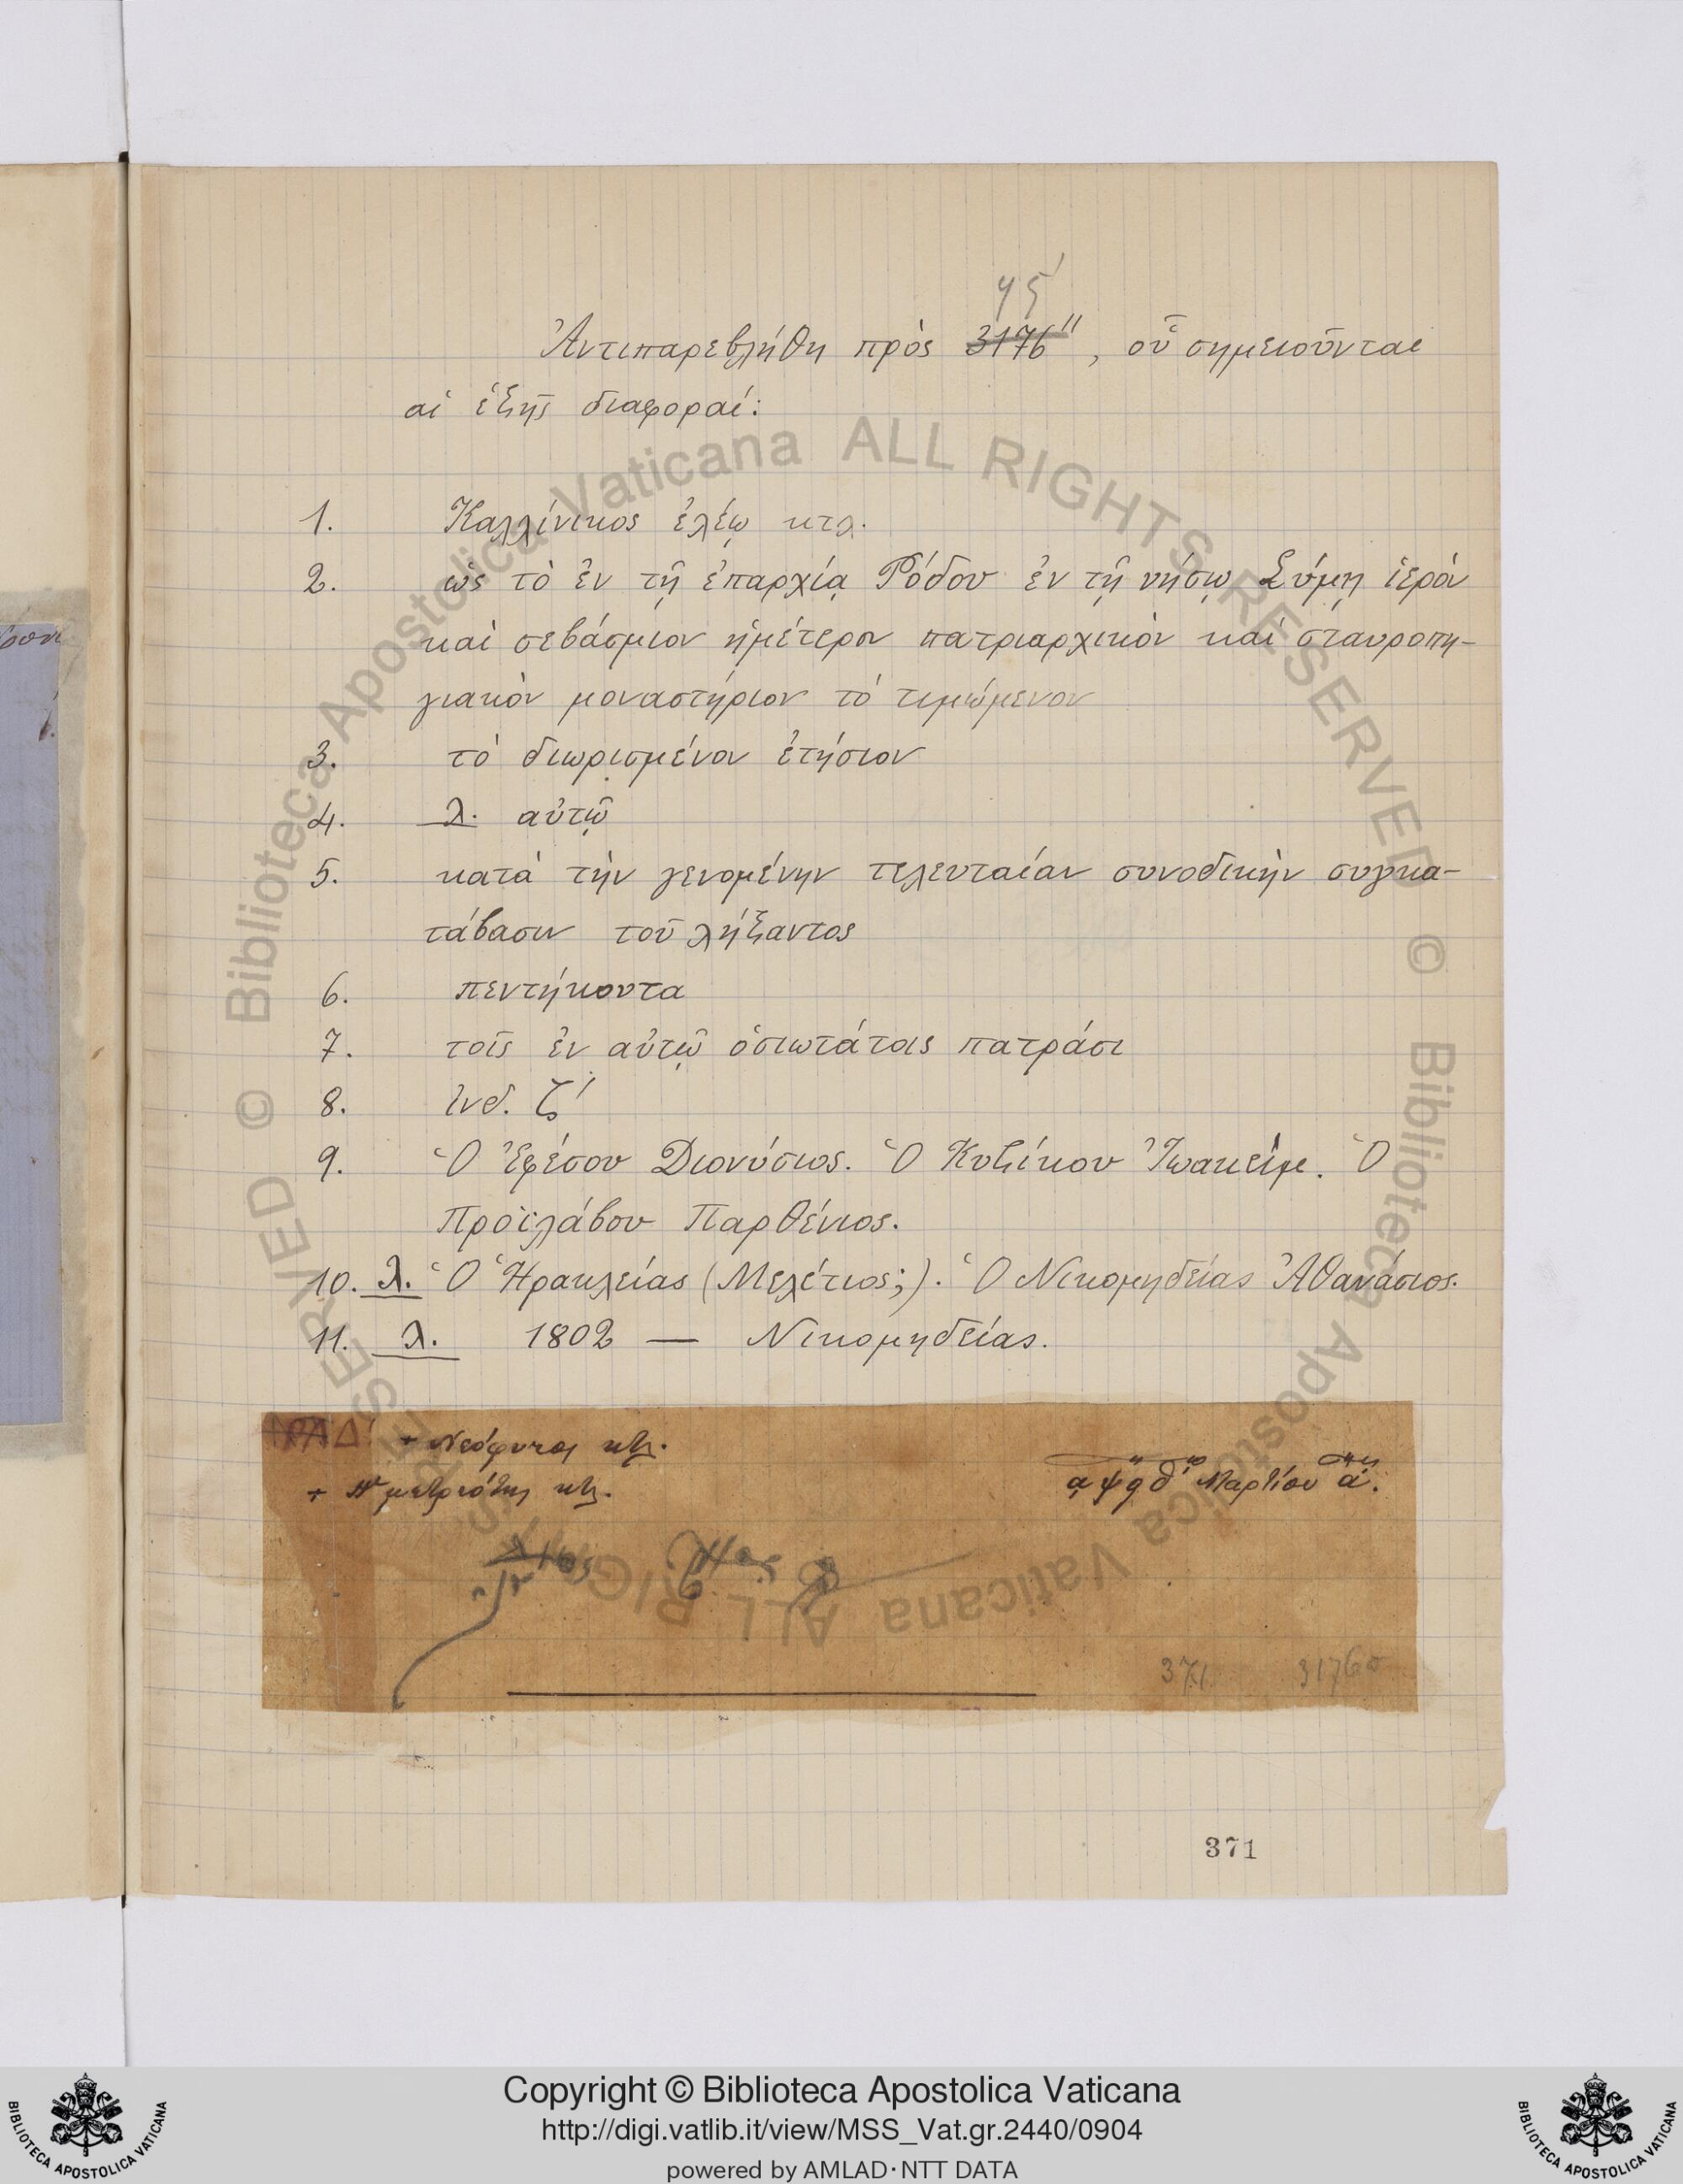 ϟϛ΄
Ἀντιπαρεβλήθη πρὸς 3176", οὗ σημειοῦνται
αἱ ἑξῆς διαφοραί:
1. Καλλίνικος ἐλέῳ κτλ.
2. ὡς τὸ ἐν τῇ ἐπαρχίᾳ Ρόδου ἐν τῇ νήσῳ Σύμῃ ἱερὸν
καὶ σεβάσμιον ἡμέτερον πατριαρχικὸν καὶ σταυροπη-
γιακὸν μοναστήριον τὸ τιμώμενον
3. τὸ διωρισμένον ἐτήσιον
4. λ. αὐτῷ
5. κατὰ τὴν γενομένην τελευταίαν συνοδικὴν συγκα-
τάβασιν τοῦ λήξαντος
6. πεντήκοντα
7. τοῖς ἐν αὐτῷ ὁσιωτάτοις πατράσι
8. ἰνδ. ζ΄
9. Ὁ Ἐφέσου Διονύσιος. Ὁ Κυζίκου Ἰωακείμ. Ὁ
Προϊλάβου Παρθένιος.
10. λ. Ὁ Ἡρακλείας (Μελέτιος;). Ὁ Νικομηδείας Ἀθανάσιος.
11. λ. 1802 — Νικομηδείας.
+ Νεόφυτος κτλ.
+ Ἡ μετριότης κτλ.
͵αψϟδῳ Μαρτίου αῃ.
371 3176α
371
Copyright © Biblioteca Apostolica Vaticana
http://digi.vatlib.it/view/MSS_Vat.gr.2440/0904
powered by AMLAD·NTT DATA
BIBLIOTECA APOSTOLICA VATICANA
BIBLIOTECA APOSTOLICA VATICANA
© Biblioteca Apostolica Vaticana ALL RIGHTS RESERVED
© Biblioteca Apostolica Vaticana ALL RIGHTS RESERVED